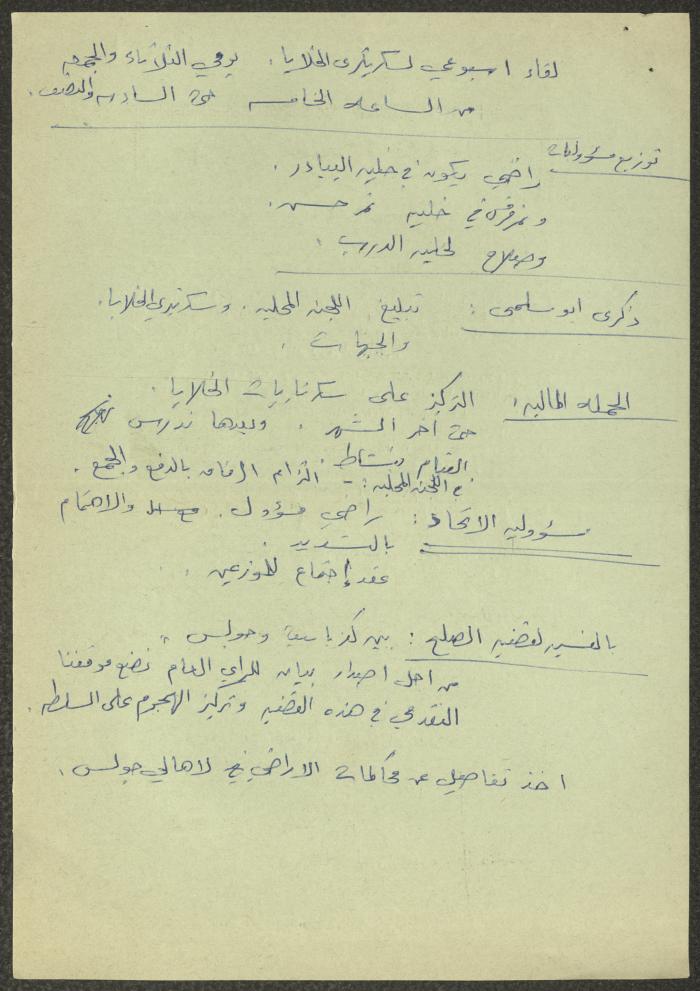 لقاء اسبوعي لسكرتيري الخلايا. يومي الثلاثاء والجمعه
من الساعه الخامسه حتى السادسه والنصف.
توزيع مسؤوليات
راضي يكون في خليه البيادر.
ونمر في خليه نمر حسين.
وصلاح لخليه الدرب.
ذكرى ابو سلمى: تبليغ اللجنه المحليه. وسكرتيري الخلايا.
والجبهات.
الحمله الماليه: التركيز على سكرتاريات الخلايا.
حتى آخر الشهر. وبعدها ندرس
القيام بنشاط
في اللجنه المحليه: - التزام الرفاق بالدفع والجمع.
مسؤوليه الاتحاد: راضي مسؤول. والاهتمام
بالتسديد.
عقد إجتماع للموزعين.
بالنسبه لقضيه الصلح: بين كفر ياسيف وجولس.
من اجل اصدار بيان للراي العام نضع موقفنا
التقدمي في هذه القضيه وتركيز الهجوم على السلطه.
اخذ تفاصيل عن محاكمات الاراضي لاهالي جولس.